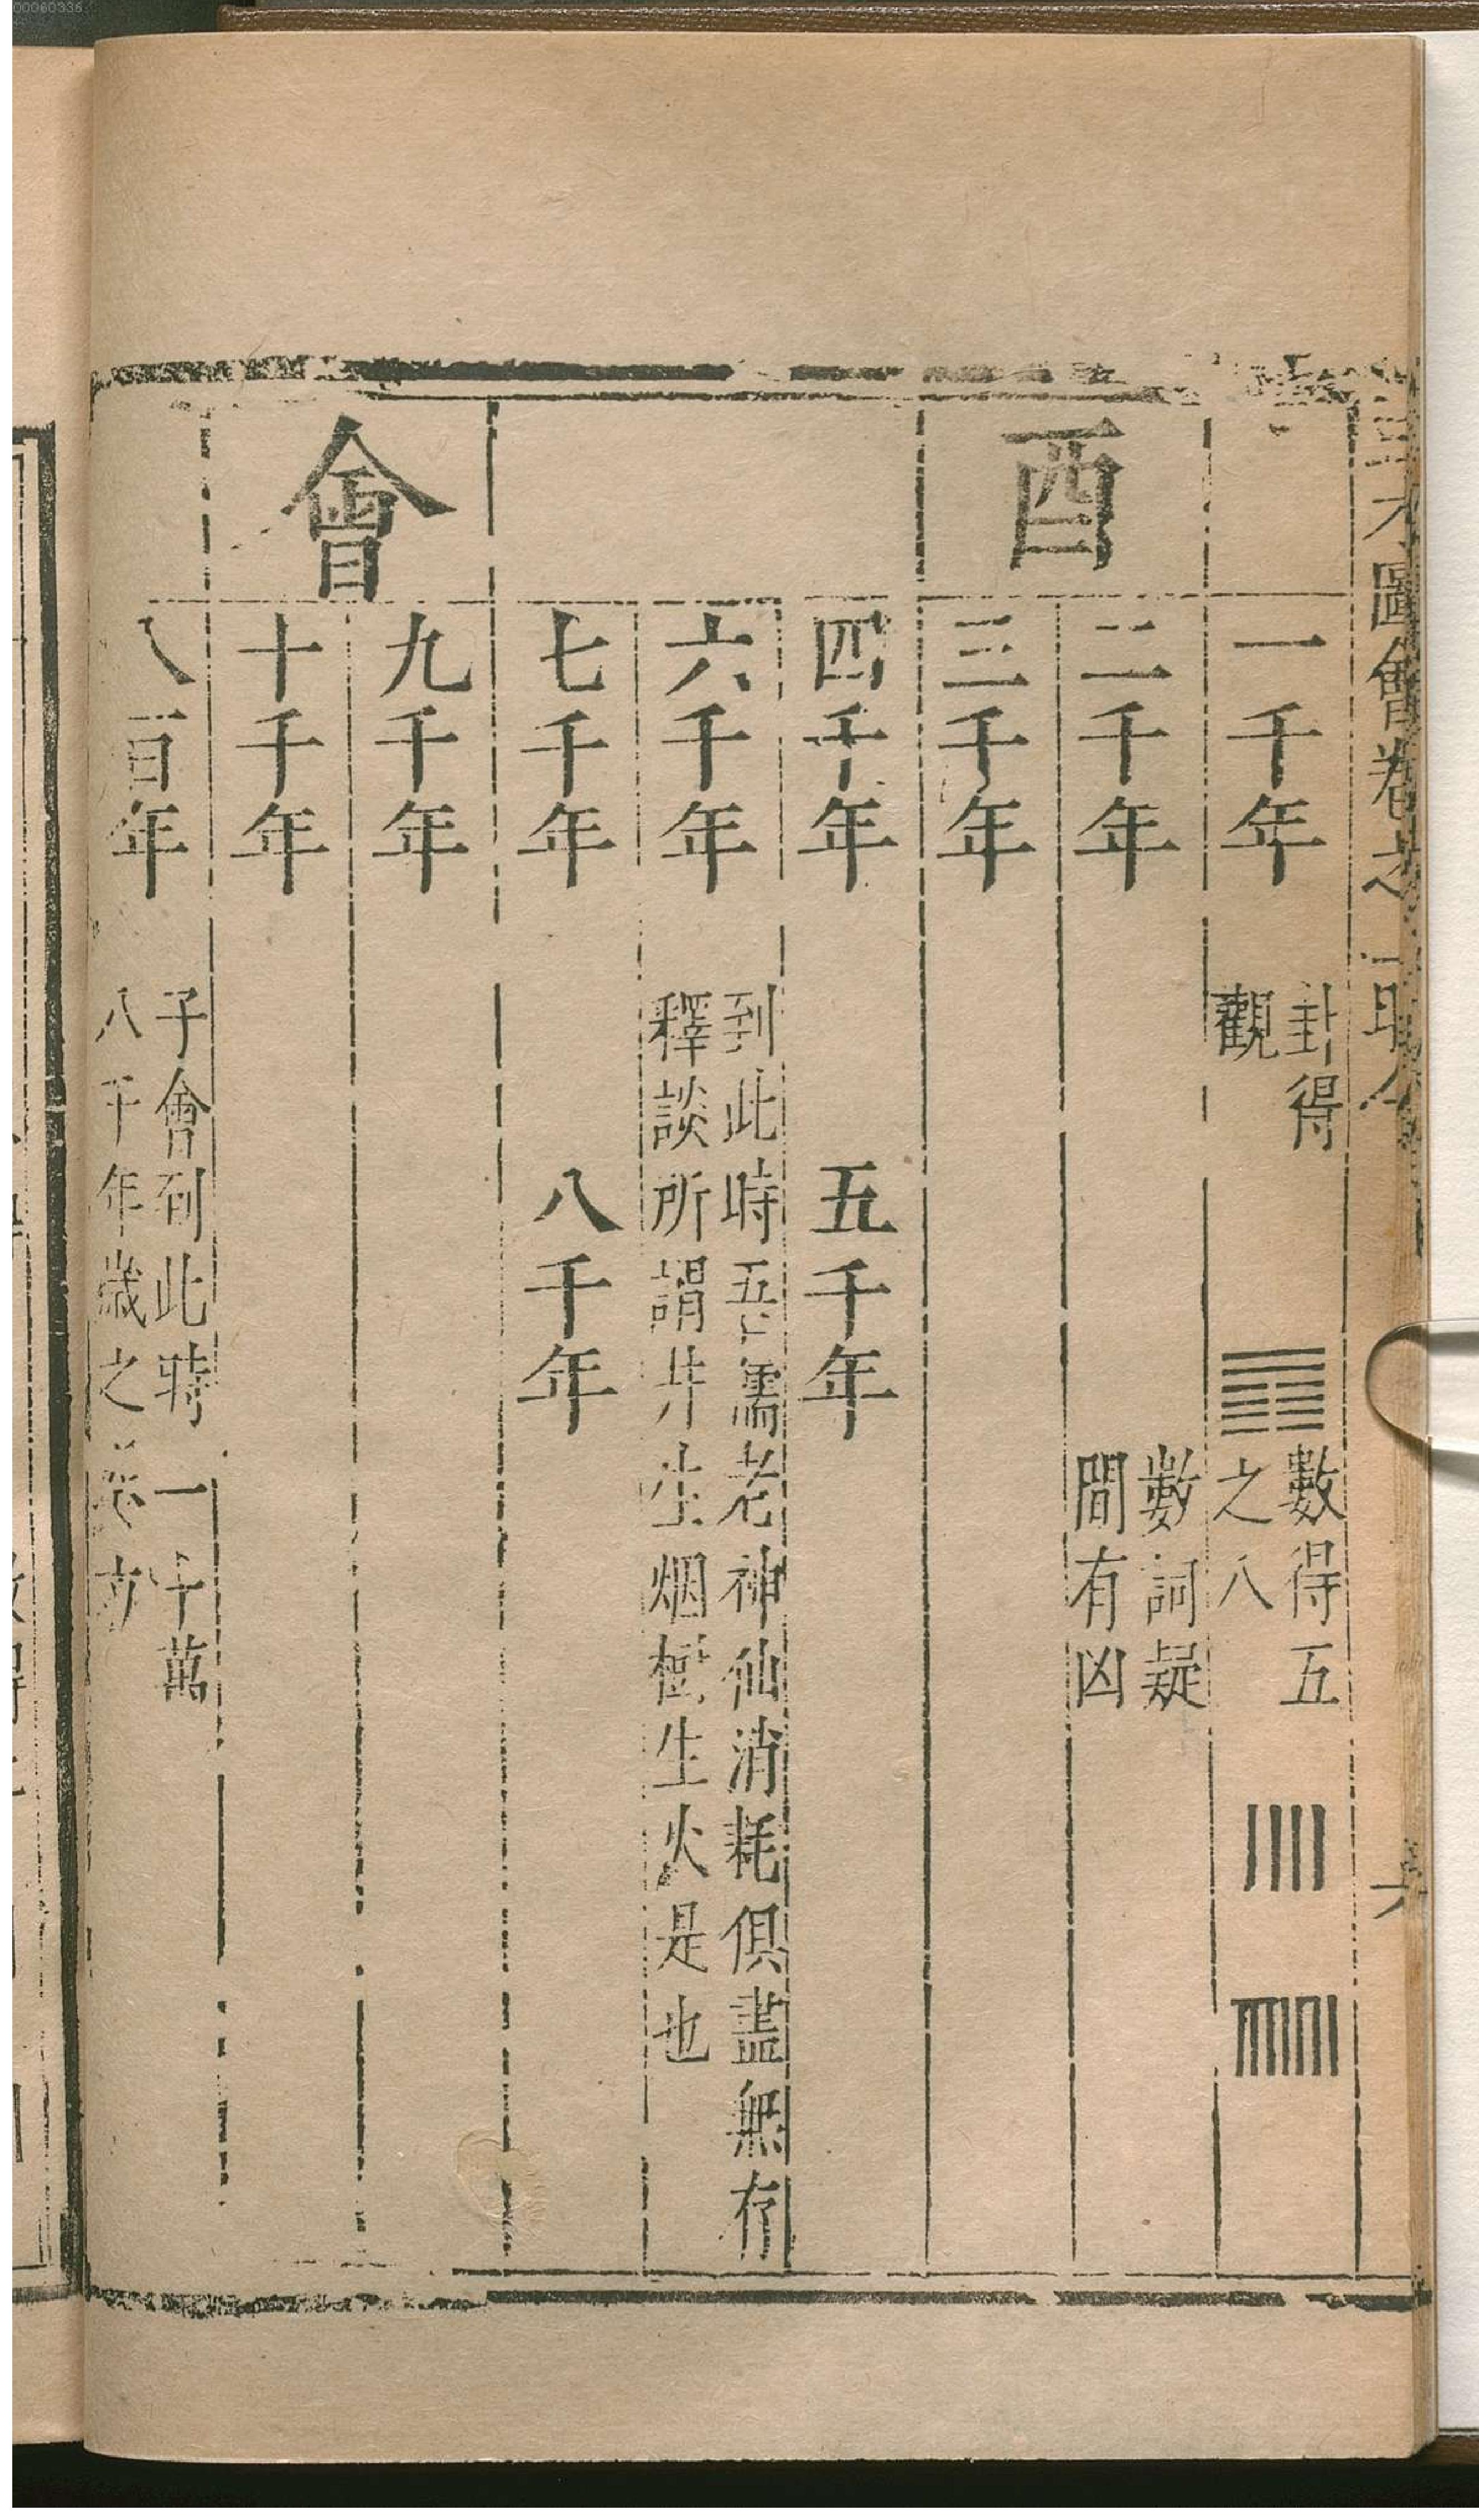 00060335
三才圖會卷之一時令
酉
會
一千年
卦得
觀
數得五
之八
二千年
數詞疑
間有凶
三千年
四千年
五千年
六千年
到此時吾儒老神仙消耗俱盡無存
釋談所謂井生烟樹生火是也
七千年
八千年
九千年
十千年
八百年
子會到此時一十萬
八千年歲之